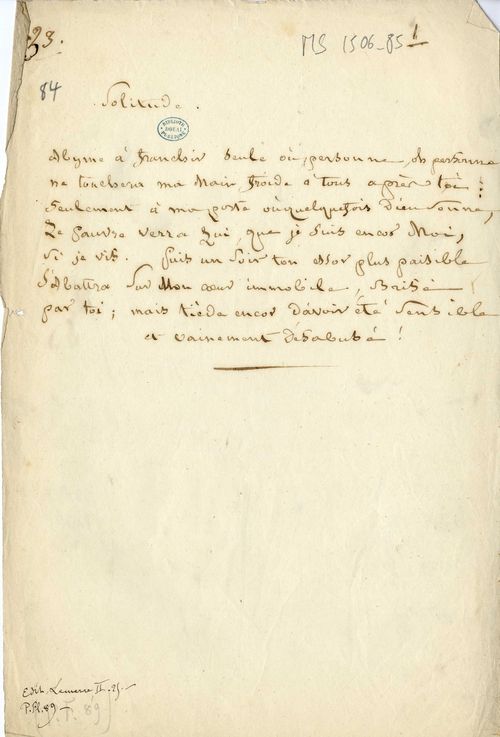 23.
MS 1506-85 1
84
Solitude.
BIBLIOTH DOUAI PUBLIQUE
Abyme à franchir seule où personne, oh personne
ne touchera ma Main froide à tous après toi :
Seulement à ma porte où quelquefois Dieu Sonne,
Le pauvre verra Lui, que je Suis encor Moi,
Si je vis. puis un Soir ton essor plus paisible
S'abattra Sur Mon cœur immobile, Brisé
par toi ; mais tiède encor d'avoir été Sensible
et vainement Désabusé !
Edit. Lemerre II. 25-
P. Pl. 89-
P. 89